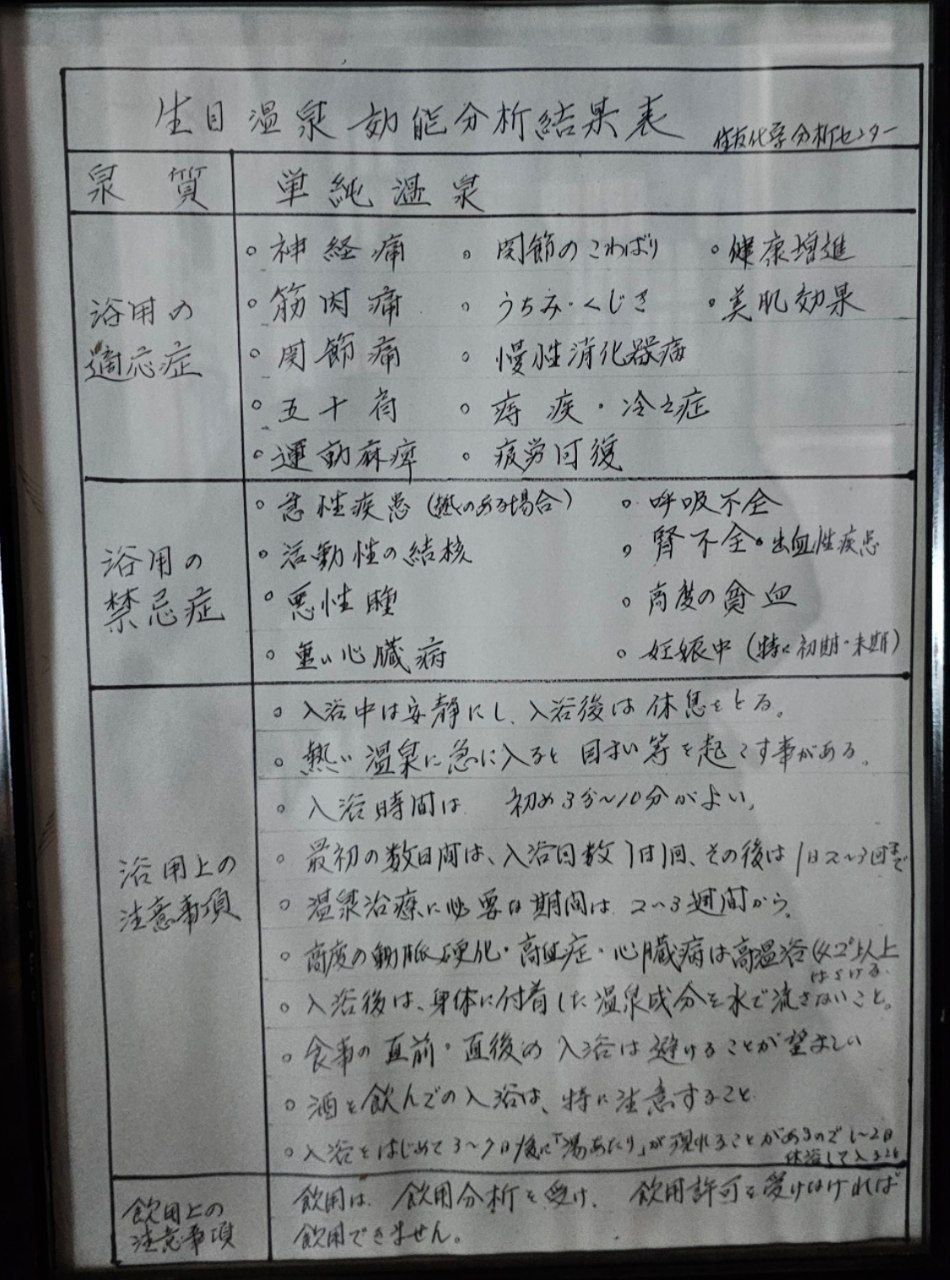 生目温泉 効能分析結果表
住友化学分析センター
泉質 単純温泉
浴用の
適応症
。神経痛 。関節のこわばり 。健康増進
。筋肉痛 うちみ・くじき 。美肌効果
。関節痛 。慢性消化器病
。五十肩 。痔疾・冷え症
。運動麻痺 。疲労回復
浴用の
禁忌症
。急性疾患(熱のある場合) 。呼吸不全
。活動性の結核 。腎不全・出血性疾患
。悪性腫 。高度の貧血
。重い心臓病 。妊娠中(特に初期・末期)
浴用上の
注意事項
。入浴中は安静にし、入浴後は休息をとる。
。熱い温泉に急に入ると目まい等を起こす事がある。
。入浴時間は 初め3分~10分がよい。
。最初の数日間は、入浴回数1日1回、その後は1日2~3回まで
。温泉治療に必要な期間は 2~3週間から。
。高度の動脈硬化・高血症・心臓病は高温浴(42°以上
はさける。
。入浴後は、身体に付着した温泉成分を水で流さないこと。
。食事の直前・直後の入浴は避けることが望ましい
。酒を飲んでの入浴は、特に注意すること
。入浴をはじめて3~7日後に「湯あたり」が現れることがあるので1~2日
飲用上の
注意事項
飲用は、飲用分析を受け、飲用許可を受けなければ
飲用できません。